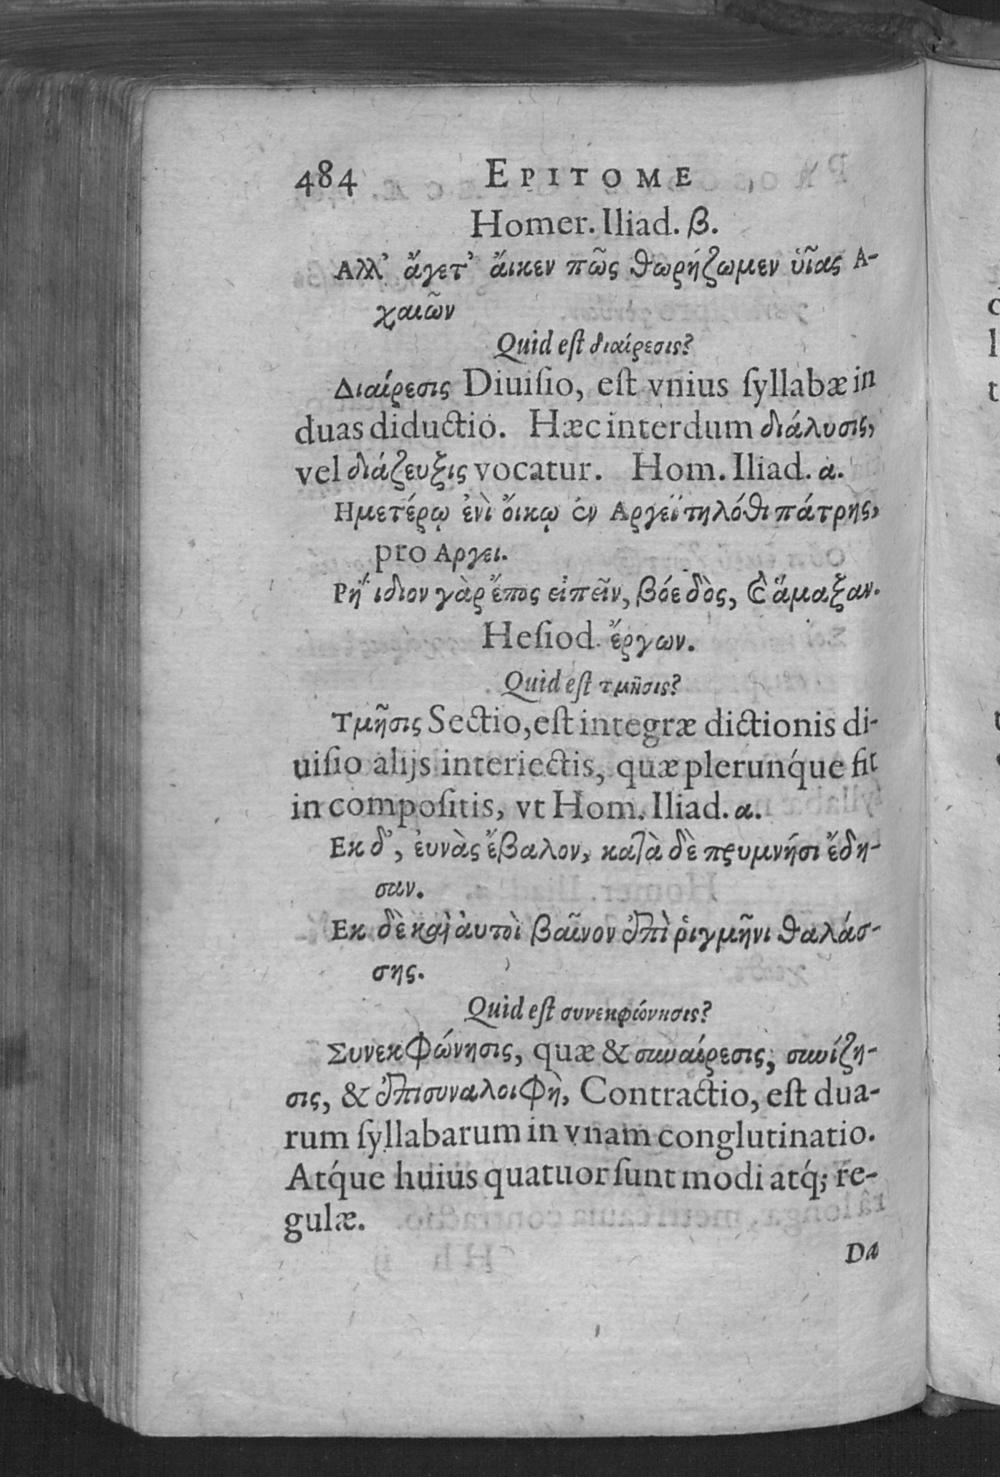 484 EPITOME
Homer. Iliad. β.
Αλλ' ἄγετ' ἄικεν πῶς θωρήζωμεν ὑῖας Α-
χαιῶν
Quid eſt διαίρεσις?
Διαίρεσις Diuiſio, eſt vnius ſyllabæ in
duas diductio. Hæc interdum διάλυσις,
vel διάζευξις vocatur. Hom. Iliad. α.
Ημετέρῳ ἐνὶ ὄικῳ ἐν Αργεϊ τηλόθι πάτρης,
pro Αργει.
Ρηΐδιον γὰρ ἔπος εἰπεῖν, βόε δὸς, καὶ ἄμαξαν.
Heſiod. ἔργων.
Quid eſt τμῆσις?
Τμῆσις Sectio, eſt integræ dictionis di-
uiſio alijs interiectis, quæ plerunq́ue fit
in compoſitis, vt Hom. Iliad. α.
Εκ δ', ἐυνὰς ἔβαλον, κατὰ δὲ πρυμνήσι ἔδη-
σαν.
Εκ δὲ καὶ ἀυτοὶ βαῖνον ἐπὶ ῥιγμῆνι θαλάσ-
σης.
Quid eſt συνεκφώνησις?
Συνεκφώνησις, quæ & συναίρεσις, συνίζη-
σις, & ἐπισυναλοιφὴ, Contractio, eſt dua-
rum ſyllabarum in vnam conglutinatio.
Atq́ue huius quatuor ſunt modi atq́; re-
gulæ.
Da